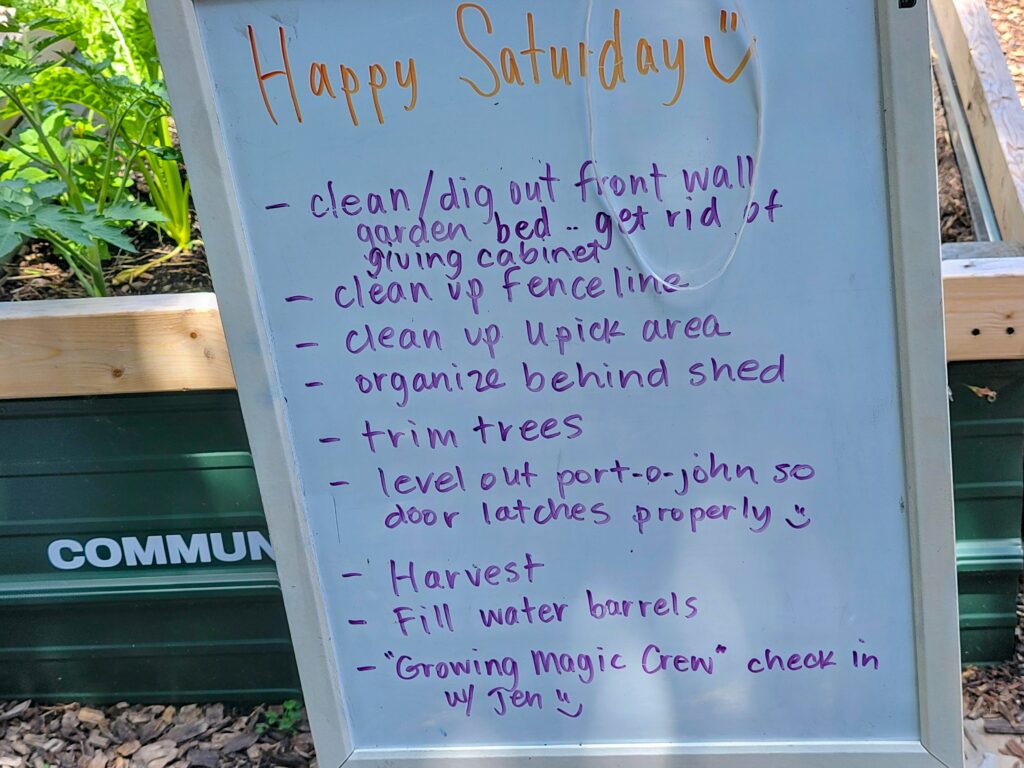 Happy Saturday
- clean/dig out front wall
garden bed .. get rid of
giving cabinet
- clean up fenceline
- clean up upick area
- organize behind shed
- trim trees
- level out port-o-john so
door latches properly
- Harvest
- Fill water barrels
- "Growing Magic Crew" check in
w/ Jen
COMMUN